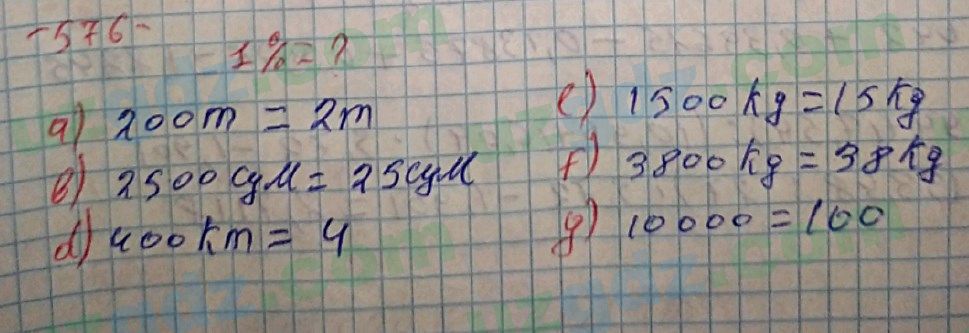 -576-
1%=?
a) 200m = 2m
b) 2500 сум = 25 сум
d) 400km = 4
e) 1500 kg = 15 kg
f) 3800 kg = 38 kg
g) 10000 = 100